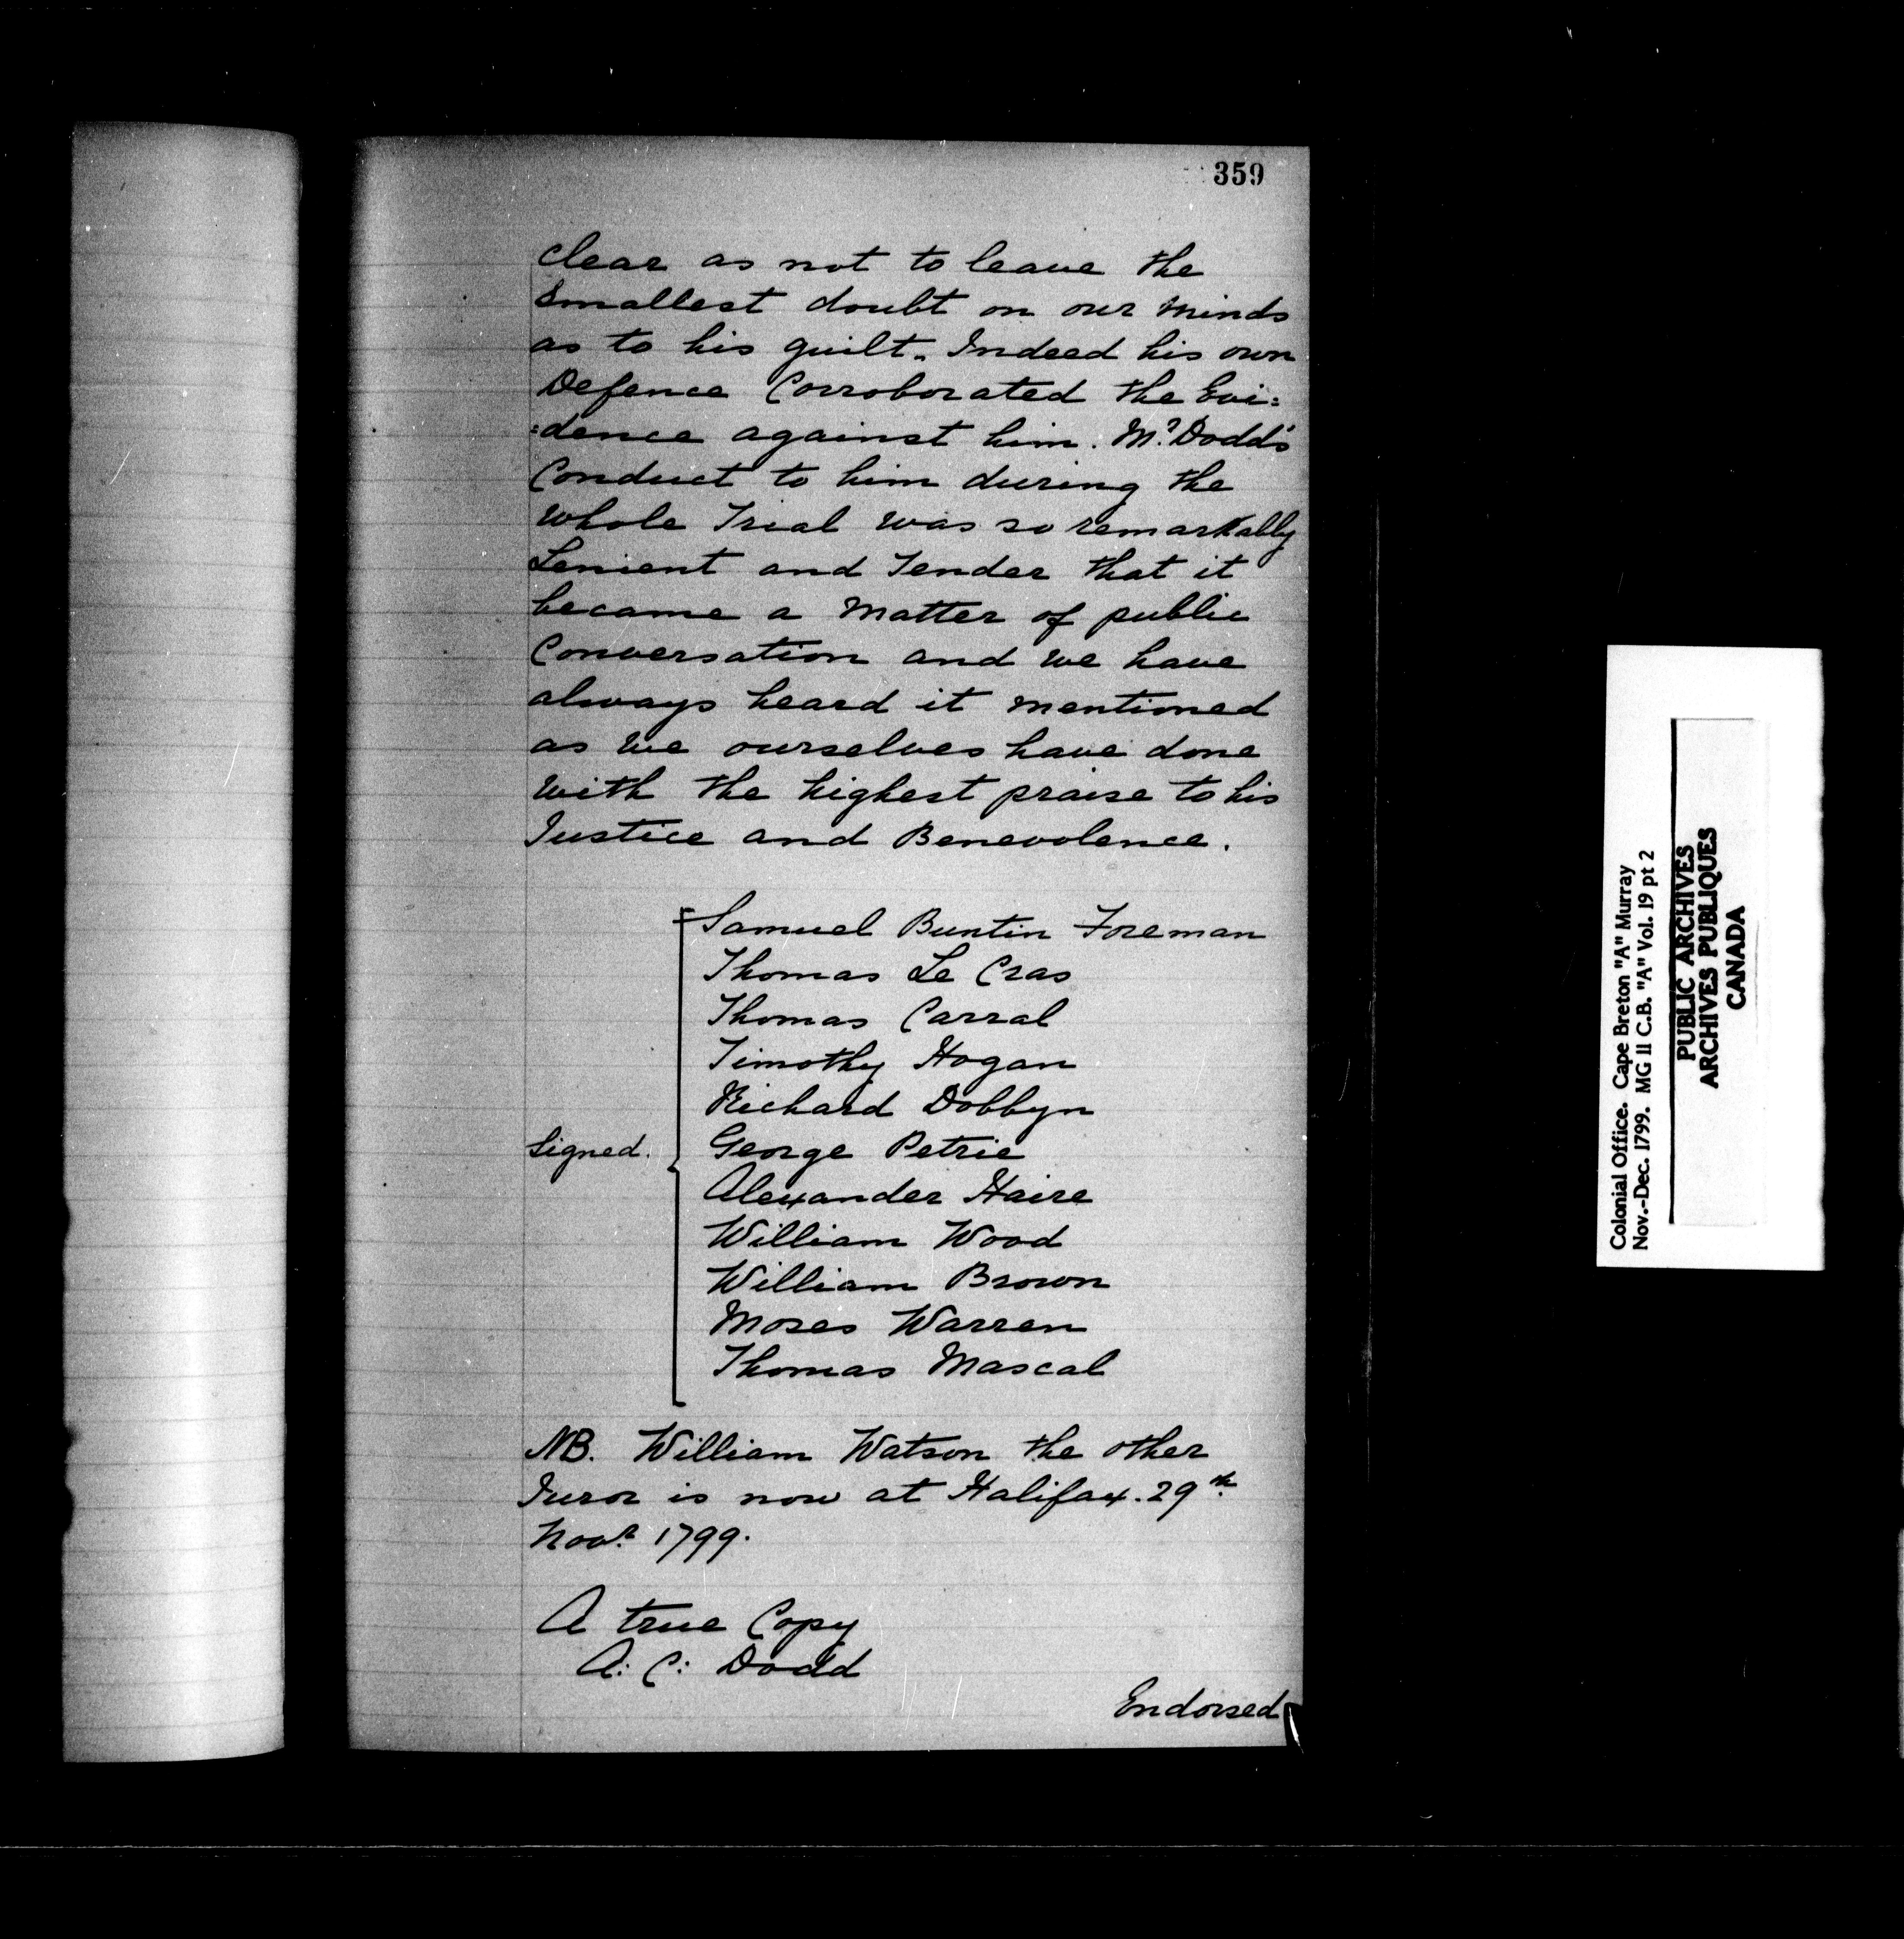 359
Clear as not to leave the
Smallest doubt on our Minds
as to his guilt. Indeed his own
Defence Corroborated the Evi=
=dence against him. Mr. Dodd's
Conduct to him during the
Whole Trial was so remarkably
Lenient and Tender that it
became a Matter of public
Conversation and we have
always heard it mentioned
as we ourselves have done
with the highest praise to his
Justice and Benevolence.
Samuel Buntin Foreman
Thomas Le Cras
Thomas Carral
Timothy Hogan
Richard Dobbyn
Signed. George Petrie
Alexander Haire
William Wood
William Brown
Moses Warren
Thomas Mascal
NB. William Watson the other
Juror is now at Halifax. 29th
Novr. 1799.
A true Copy
A: C: Dodd
Endorsed
Colonial Office. Cape Breton "A" Murray
Nov.-Dec. 1799. MG 11 C.B. "A" Vol. 19 pt 2
PUBLIC ARCHIVES
ARCHIVES PUBLIQUES
CANADA